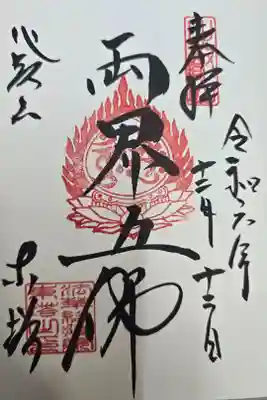 奉拝
令和六年
十二月十二日
両界五佛
比叡山
東塔